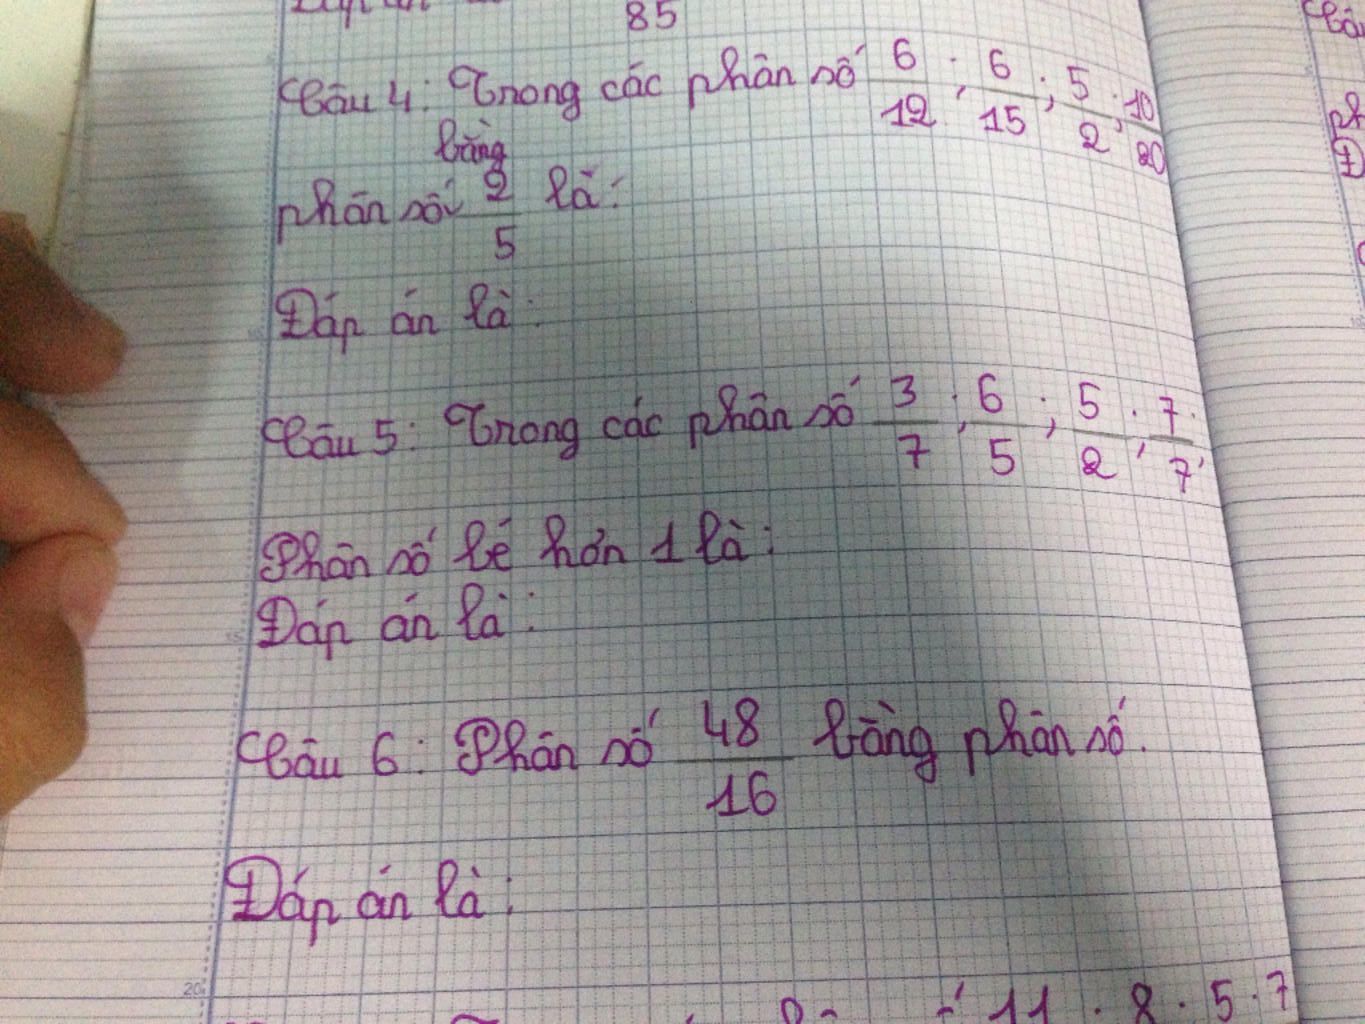 85
Câu 4: Trong các phân số 6/12; 6/15; 5/2; 10/20
bằng
phân số 2/5 là:
Đáp án là:
Câu 5: Trong các phân số 3/7; 6/5; 5/2; 7/7;
Phân số bé hơn 1 là:
Đáp án là:
Câu 6: Phân số 48/16 bằng phân số.
Đáp án là:
20
11 . 8 . 5 . 7